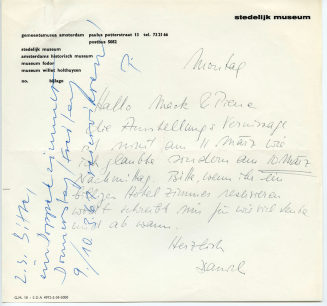 stedelijk museum
gemeentemusea amsterdam paulus potterstraat 13 tel. 73 21 66
postbus 5082
stedelijk museum
amsterdams historisch museum
museum fodor
museum willet holthuysen
no. bijlage
Montag
Hallo Mack & Piene
die Ausstellungs Vernissage
ist nicht am 11 März wie
ich glaubte sondern am 10 März
Nachmittag. Bitte, wenn ihr ein
Hotel Zimmer reservieren
wollt schreibt mir für wieviel Leute
und ab wann.
Herzlich
Daniel
Bitte,
ein Doppelzimmer
Donnerstag/Freitag
9/10